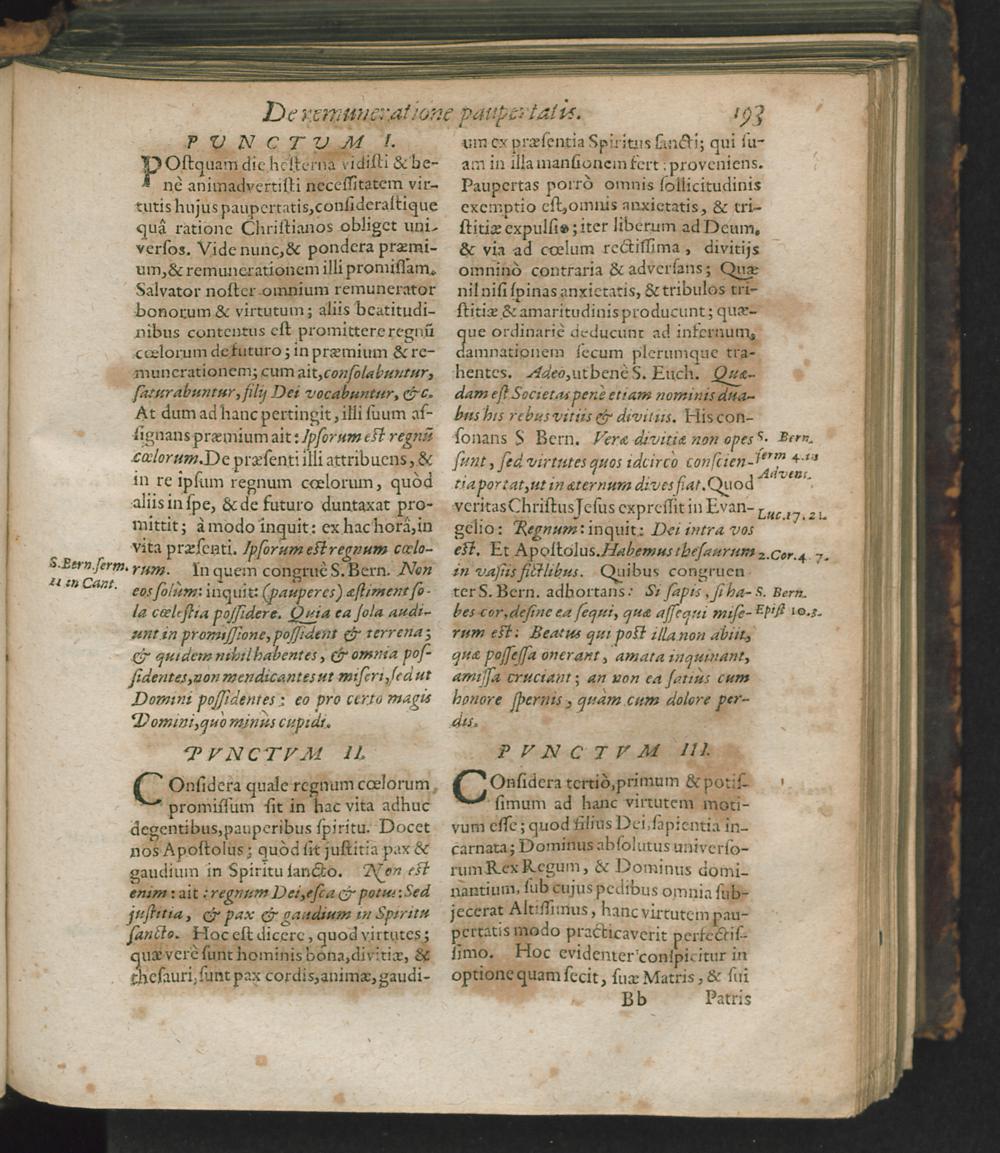 De remuneratione paupertatis. 193
PVNCTVM I.
POſtquam die heſterna vidiſti & be-
nè animadvertiſti neceſſitatem vir-
tutis hujus paupertatis, conſideraſtique
quâ ratione Chriſtianos obliget uni-
verſos. Vide nunc, & pondera præmi-
um, & remunerationem illi promiſſam.
Salvator noſter omnium remunerator
bonorum & virtutum; aliis beatitudi-
nibus contentus eſt promittere regnũ
cœlorum de futuro; in præmium & re-
munerationem; cum ait, conſolabuntur,
ſaturabuntur, filij Dei vocabuntur, &c.
At dum ad hanc pertingit, illi ſuum aſ-
ſignans præmium ait: Ipſorum eſt regnũ
cœlorum. De præſenti illi attribuens, &
in re ipſum regnum cœlorum, quòd
aliis in ſpe, & de futuro duntaxat pro-
mittit; à modo inquit: ex hac horâ, in
vita præſenti. Ipſorum eſt regnum cœlo-
rum. In quem congruè S. Bern. Non
S. Bern. ſerm.
21 in Cant.
eos ſolùm: inquit (pauperes) æſtiment ſo-
la cœleſtia poſſidere. Quia ea ſola audi-
unt in promiſſione, poſſident & terrena;
& quidem nihil habentes, & omnia poſ-
ſidentes, non mendicantes ut miſeri, ſed ut
Domini poſſidentes; eo pro certo magis
Domini, quò minùs cupidi.
PVNCTVM II.
COnſidera quale regnum cœlorum
promiſſum ſit in hac vita adhuc
degentibus, pauperibus ſpiritu. Docet
nos Apoſtolus; quòd ſit juſtitia pax &
gaudium in Spiritu ſancto. Non eſt
enim: ait: regnum Dei, eſca & potus: Sed
juſtitia, & pax & gaudium in Spiritu
ſancto. Hoc eſt dicere, quod virtutes;
quæ verè ſunt hominis bona, divitiæ, &
theſauri, ſunt pax cordis, animæ, gaudi-
um ex præſentia Spiritus ſancti; qui ſu-
am in illa manſionem fert: proveniens.
Paupertas porrò omnis ſollicitudinis
exemptio eſt, omnis anxietatis, & tri-
ſtitiæ expulſio; iter liberum ad Deum,
& via ad cœlum rectiſſima, divitijs
omninò contraria & adverſans; Quæ
nil niſi ſpinas anxietatis, & tribulos tri-
ſtitiæ & amaritudinis producunt; quæ-
que ordinariè deducunt ad infernum,
damnationem ſecum plerumque tra-
hentes. Adeo, ut benè S. Euch. Quæ-
dam eſt Societas penè etiam nominis dua-
bus his rebus vitiis & divitiis. His con-
ſonans S Bern. Veræ divitiæ non opes
S. Bern.
ſerm 4. in
Advent.
ſunt, ſed virtutes quos idcircò conſcien-
tia portat, ut in æternum dives fiat. Quod
veritas Chriſtus Jeſus expreſſit in Evan-
Luc. 17. 21.
gelio: Regnum: inquit: Dei intra vos
eſt. Et Apoſtolus. Habemus theſaurum
2. Cor. 4 7.
in vaſiis fictlibus. Quibus congruen
ter S. Bern. adhortans: Si ſapis, ſi ha-
S. Bern.
Epiſt 103.
bes cor, deſine ea ſequi, quæ aſſequi miſe-
rum eſt: Beatus qui poſt illa non abiit,
quæ poſſeſſa onerant, amata inquinant,
amiſſa cruciant; an non ea ſatius cum
honore ſpernis, quàm cum dolore per-
dis.
PVNCTVM III.
COnſidera tertiò, primum & potiſ-
ſimum ad hanc virtutem moti-
vum eſſe; quod filius Dei, ſapientia in-
carnata; Dominus abſolutus univerſo-
rum Rex Regum, & Dominus domi-
nantium, ſub cujus pedibus omnia ſub-
jecerat Altiſſimus, hanc virtutem pau-
pertatis modo practicaverit perfectiſ-
ſimo. Hoc evidenter conſpicitur in
optione quam fecit, ſuæ Matris, & ſui
Bb Patris